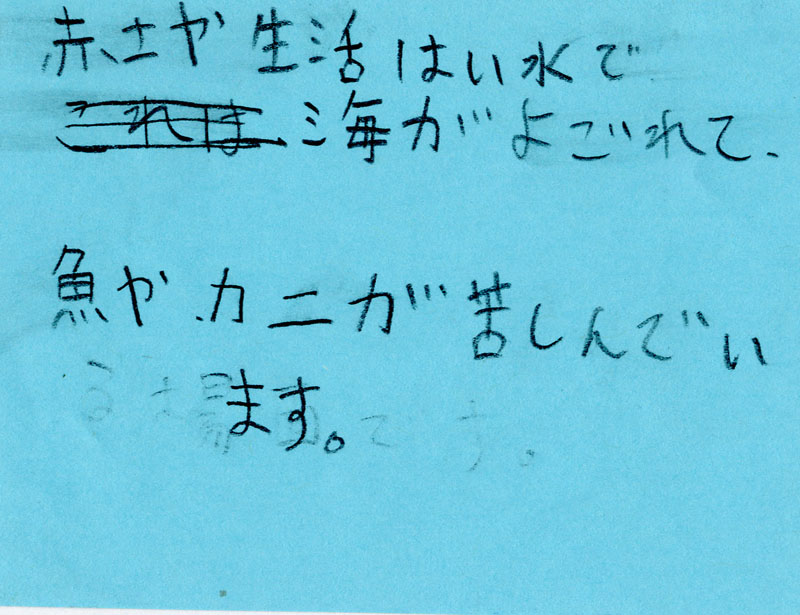 赤土や生活はい水で
海がよごれて、
魚やカニが苦しんでい
ます。